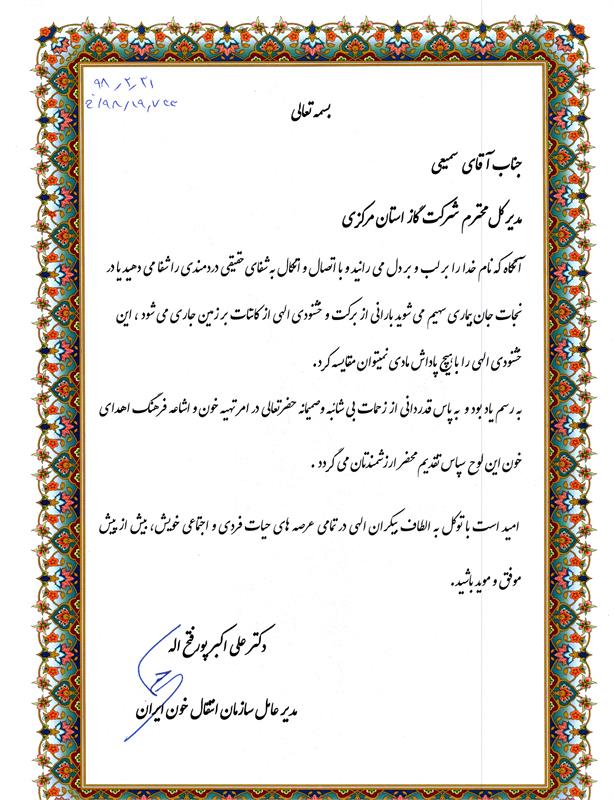 ۹۸٫۲٫۲۱
بسمه تعالی
جناب آقای سمیعی
مدیر کل محترم شرکت گاز استان مرکزی
آنگاه که نام خدا را بر لب و بر دل می رانید و با اتصال و اتکال به شفای حقیقی دردمندی را شفا می دهید یا در
نجات جان بیماری سهیم می شوید بارانی از برکت و خشنودی الهی از کائنات بر زمین جاری می شود ، این
خشنودی الهی را با هیچ پاداش مادی نمیتوان مقایسه کرد.
به رسم یاد بود و به پاس قدردانی از زحمات بی شائبه وصمیمانه حضرتعالی در امر تهیه خون و اشاعه فرهنگ اهدای
خون این لوح سپاس تقدیم محضر ارزشمندتان می گردد .
امید است با توکل به الطاف بیکران الهی در تمامی عرصه های حیات فردی و اجتماعی خویش، بیش از پیش
موفق و موید باشید.
دکتر علی اکبر پورفتح اله
مدیر عامل سازمان انتقال خون ایران